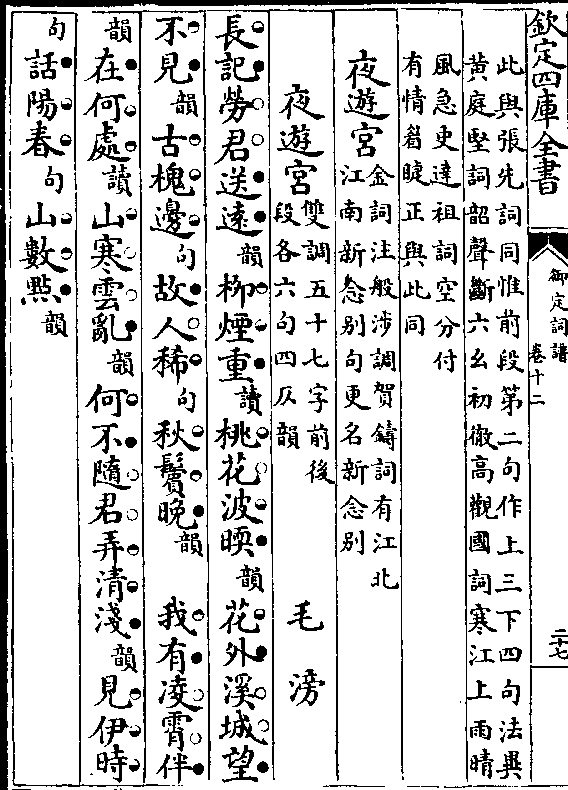 欽定四庫全書
御定詞譜
卷十二
二十七
此與張先詞同惟前段第二句作上三下四句法異
黃庭堅詞韶聲斷六幺初徹高觀國詞寒江上雨晴
風急史達祖詞空分付
有情眉睫正與此同
夜遊宮
金詞注般涉調賀鑄詞有江北
江南新念别句更名新念别
夜遊宮
雙調五十七字前後
段各六句四仄韻
毛滂
長記勞君送遠韻柳煙重讀桃花波暝韻花外溪城望
不見韻古槐邊句故人稀句秋鬢晚韻我有凌霄伴
韻在何處讀山寒雲亂韻何不隨君弄清淺韻見伊時
句話陽春句山數點韻